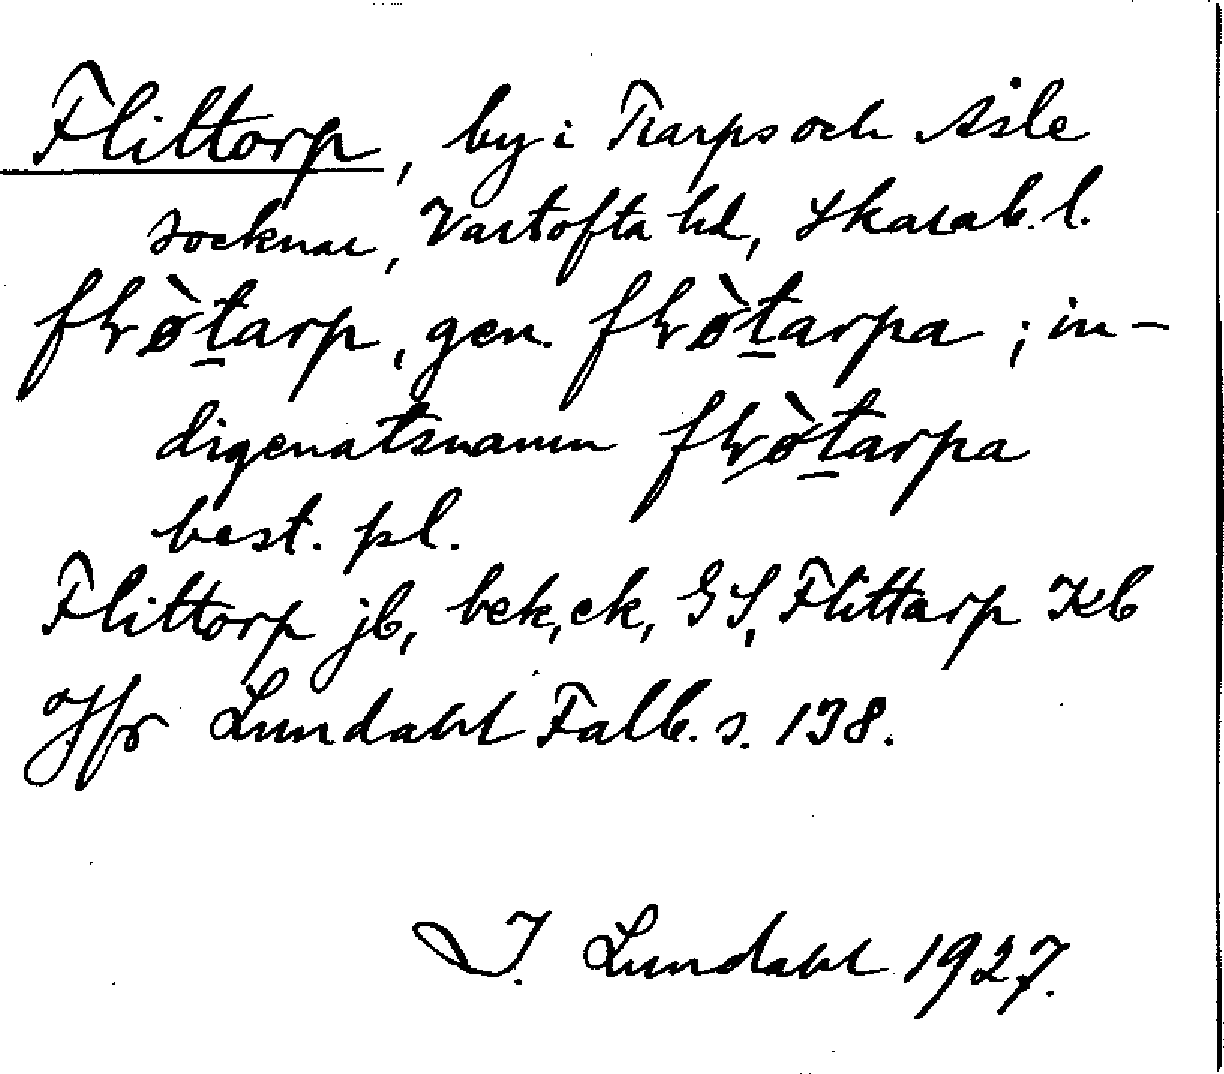 Flittorp, by i Karps och Åsle
socknar, Vartofta hd, Skarab. l.
flɵ̀tarp, gen. flɵ̀tarpa; in-
digenatsnamn flɵ̀tarpa
best. pl.
Flittorp jb, bek, ek, GS, Flittarp Kb
Jfr Lundahl Falb. s. 138.
I. Lundahl 1927.